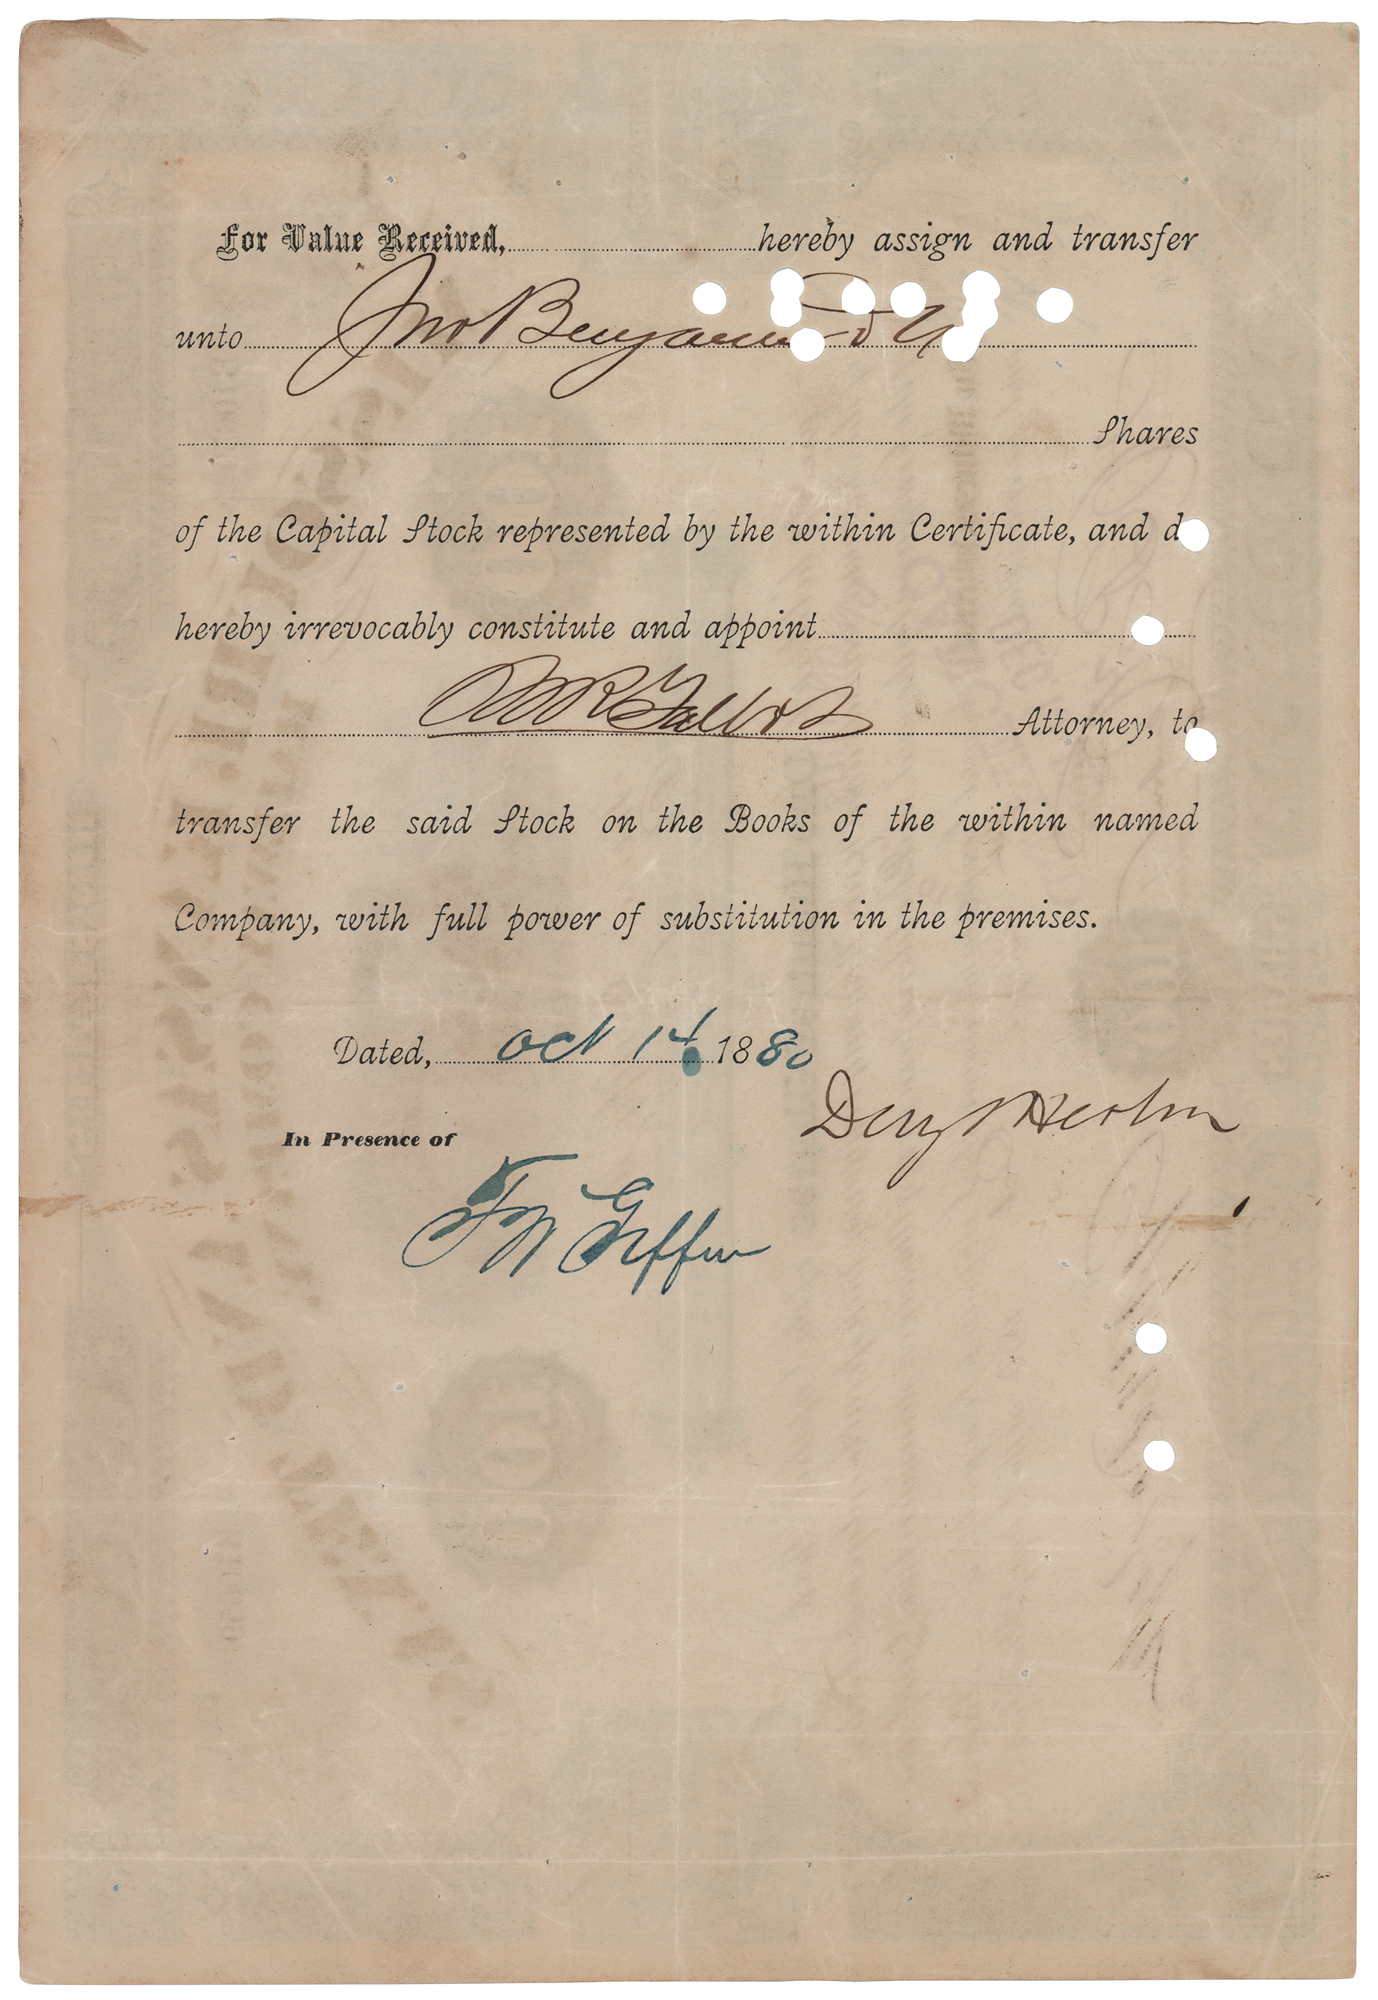 For Value Received, hereby assign and transfer
unto Jno Benjamin
Shares
of the Capital Stock represented by the within Certificate, and d
hereby irrevocably constitute and appoint
Talbot Attorney, to
transfer the said Stock on the Books of the within named
Company, with full power of substitution in the premises.
Dated, Oct 14 1880
In Presence of